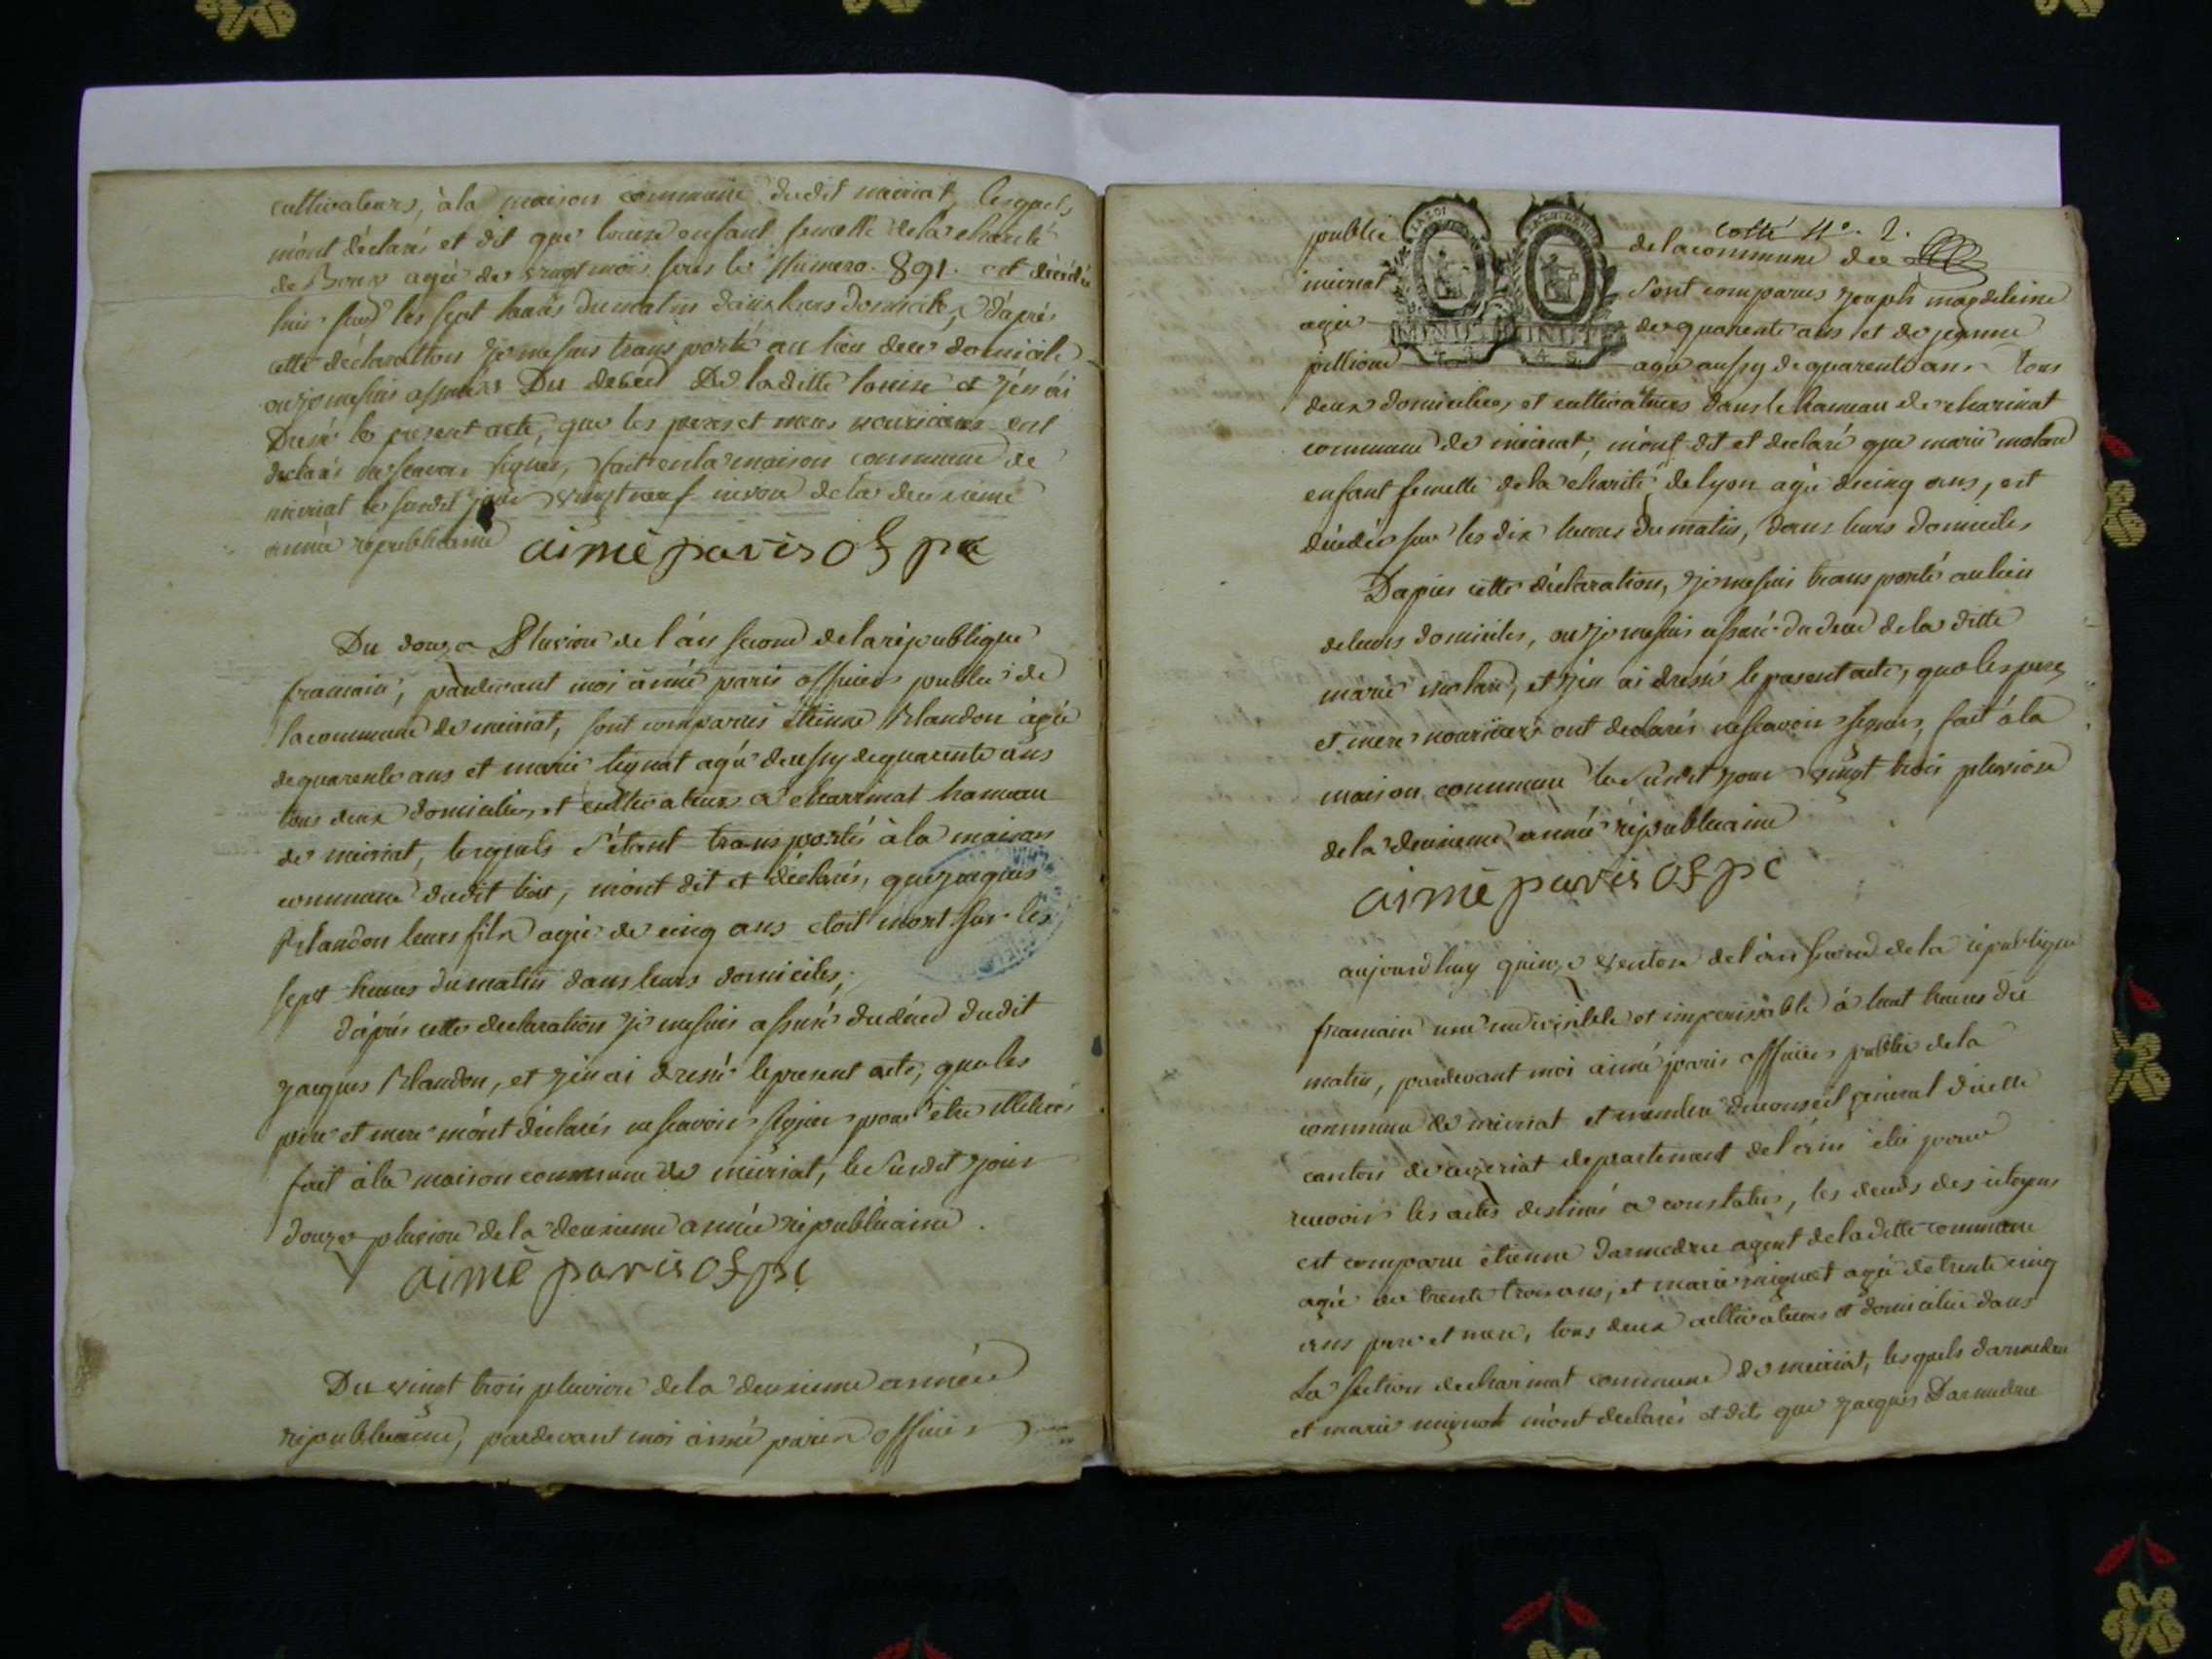 cultivateurs, à la maison commune dudit meiriat, lesquels
m'ont déclarés et dit que louise enfant femelle de la charité
de Bourg agée de vingt mois sous le Numero. 891. est décédée
hier sur les sept heures du matin dans leurs domicile, d'après
cette déclaration je me suis transporté au lieu de ce domicile
ou je me suis assuré Du décéd De laditte louise et j'en ai
Dressé le present acte, que les peres et meres nouriciers ont
declarés ne scavoir signer, fait en la maison commune de
meiriat le susdit jour vingt neuf nivose de la deuxieme
année republicaine
aimé paris of pc
Du douze Pluviose de l'an second de la république
francaise, pardevant moi aimé paris officier public de
la commune de meiriat, sont comparus étienne Blandon agée
de quarente ans et marie tignat agé aussy de quarente ans
tous deux domiciliés et cultivateurs a charinat hameau
de meiriat, lesquels s'étant transportés à la maison
commune dudit lieu, m'ont dit et déclarés, que jacques
Blandon leurs fils agée de cinq ans etoit mort sur les
sept heures du matin dans leurs domiciles,
d'après cette declaration je me suis assuré du décéd dudit
jacques Blandon, et j'en ai dressé le present acte, que les
pere et mere m'ont déclarés ne scavoir signer pour être illiterés
fait à la maison commune de meiriat, le susdit jour
douze pluviose de la deuxieme année républicaine.
aimé paris of pc
Du vingt trois pluviose de la deuxieme année
républicaine, pardevant moi aimé paris officier
cotté N°. 2.
public de la commune de
meiriat sont comparus joseph magdeleine
agée de quarente ans et de jeanne
agée aussy de quarente ans tous
deux domiciliés et cultivateurs dans le hameau de charinat
commune de meiriat, m'ont dit et declaré que marie molard
enfant femelle de la charité de lyon agée de cinq ans, est
décédée sur les dix heures du matin, dans leurs domiciles
D'apres cette déclaration, je me suis transporté au lieu
de leurs domiciles, ou je me suis assuré du deced de la ditte
marie molard, et j'en ai dressé le present acte, que les peres
et mere nouriciers ont declarés ne scavoir signer, fait à la
maison commune le susdit jour vingt trois pluviose
de la deuxieme année républicaine
aimé paris of pc
aujourd huy quinze ventose de l'an second de la république
francaise une indivisible et imperissable à huit heures du
matin, pardevant moi aimé paris officier public de la
commune de meiriat et membre du conseil general d'icelle
canton de departement de l'ain élu pour
recevoir les actes destinés a constater, les deceds des citoyens
est comparu étienne darmedru agent de laditte commune
agée de trente trois ans, et marie mignot agée de trente cinq
ans pere et mere, tous deux cultivateurs et domicilié dans
La section de charinat commune de meiriat, lesquels darmedru
et marie mignot m'ont declarés et dit que jacques Darmedru